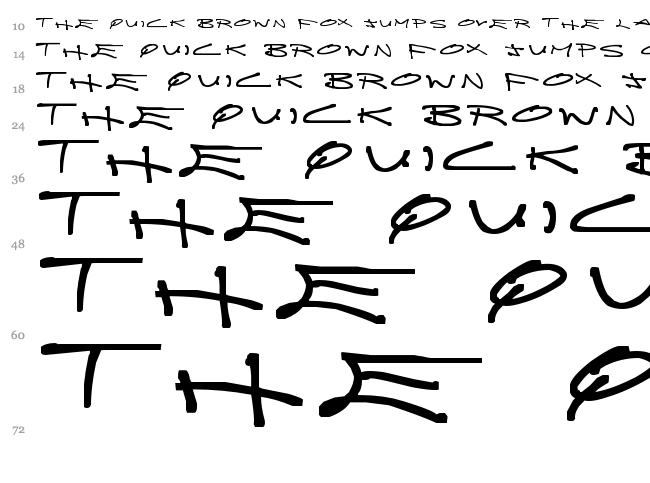 10 THE QUICK BROWN FOX JUMPS OVER THE LA
14 THE QUICK BROWN FOX JUMPS O
18 THE QUICK BROWN FOX J
24 THE QUICK BROWN
36 THE QUICK B
48 THE QUIC
60 THE QU
72 THE Q